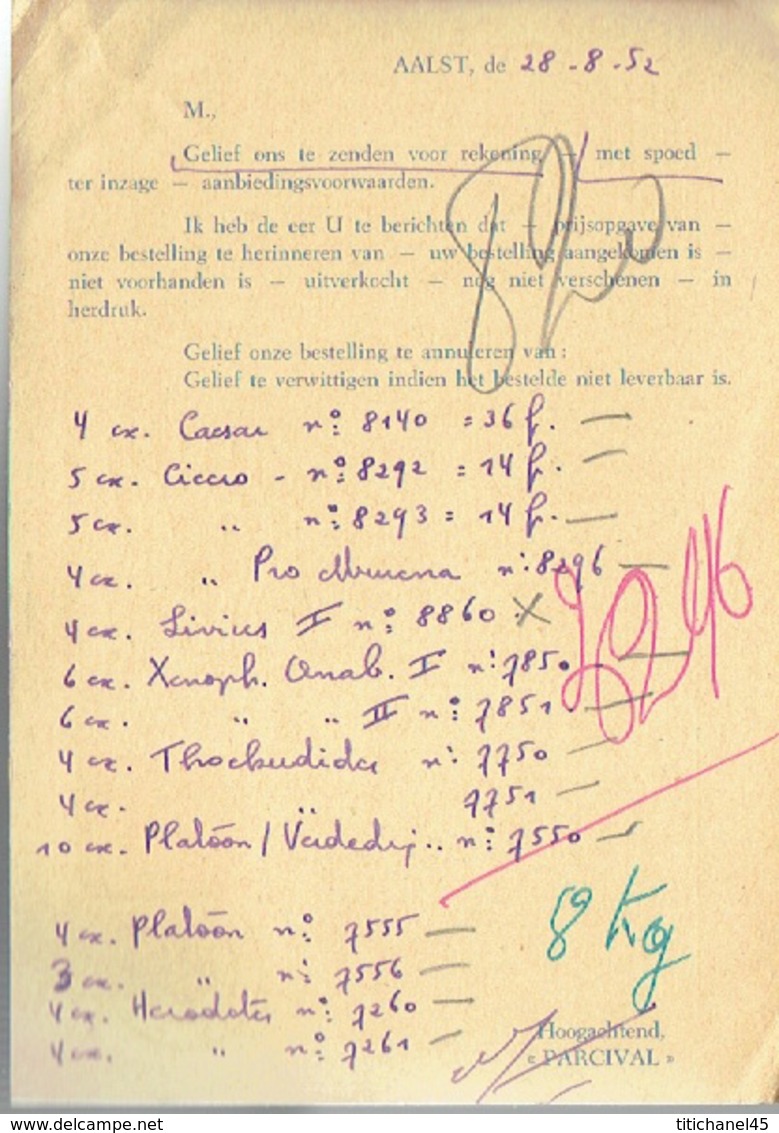 AALST, de 28-8-52
M.,
Gelief ons te zenden voor rekening — met spoed —
ter inzage — aanbiedingsvoorwaarden.
Ik heb de eer U te berichten dat — prijsopgave van —
onze bestelling te herinneren van — uw bestelling aangekomen is —
niet voorhanden is — uitverkocht — nog niet verschenen — in
herdruk.
Gelief onze bestelling te annuleren van :
Gelief te verwittigen indien het bestelde niet leverbaar is.
4 ex. Caesar nº: 8140 = 36 f. —
5 ex. Cicero - nº: 8292 = 14 f. —
5 ex. .. nº: 8293 = 14 f. —
4 ex. .. Pro Murena n: 8296 —
4 ex. Livius I nº: 8860 X
6 ex. Xenoph. Anab. I n: 7850 —
6 ex. .. .. II n: 7851 —
4 ex. Thoekudides n: 7750 —
4 ex. .. 7751 —
10 ex. Platoon / Verdedig.. n: 7550 —
4 ex. Platoon nº: 7555 —
3 ex. .. n: 7556 —
4 ex. Herodotos nº: 7260 —
4 ex. .. nº: 7261 —
8 Kg
Hoogachtend,
« PARCIVAL »
titichanel45